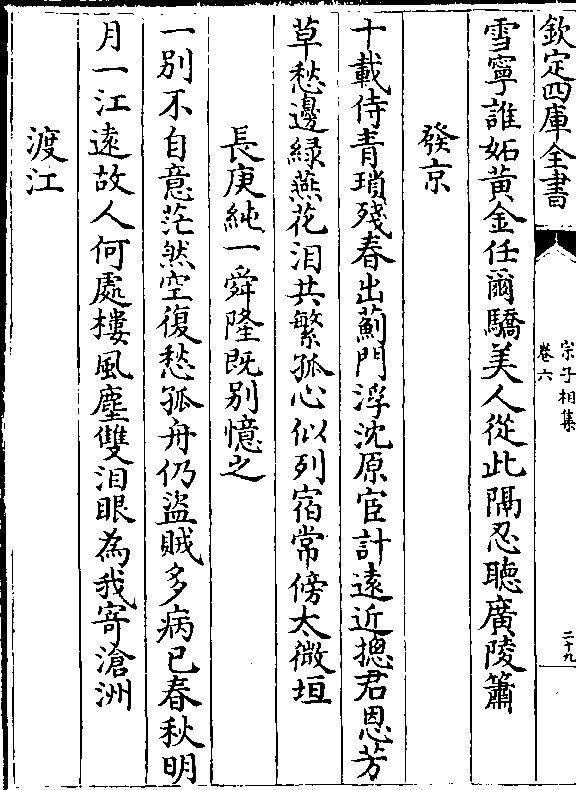 欽定四庫全書
宗子相集
卷六
二十九
雪寧誰妬黃金任爾驕美人從此隔忍聽廣陵簫
發京
十載侍青瑣殘春出薊門浮沈原宦計遠近摠君恩芳
草愁邊綠燕花淚共繁孤心似列宿常傍太微垣
長庚純一舜隆既別憶之
一別不自意茫然空復愁孤舟仍盜賊多病已春秋明
月一江遠故人何處樓風塵雙淚眼為我寄滄洲
渡江